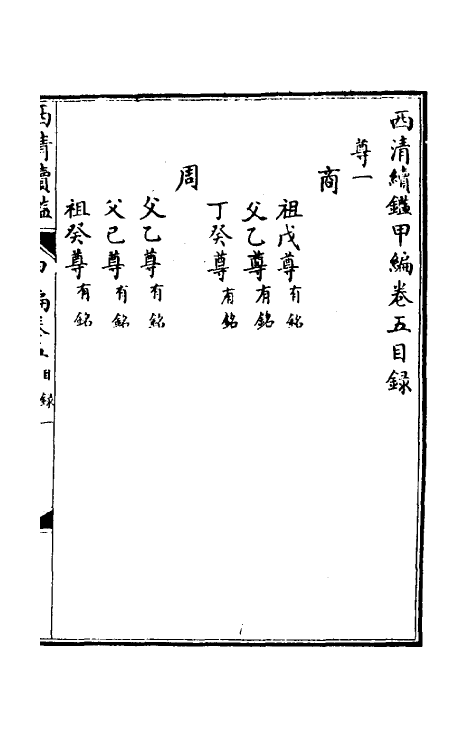 西清續鑑甲編卷五目録
尊一
商
祖戊尊有銘
父乙尊有銘
丁癸尊有銘
周
父乙尊有銘
父己尊有銘
祖癸尊有銘
西清續鑑 甲編卷五目録 一